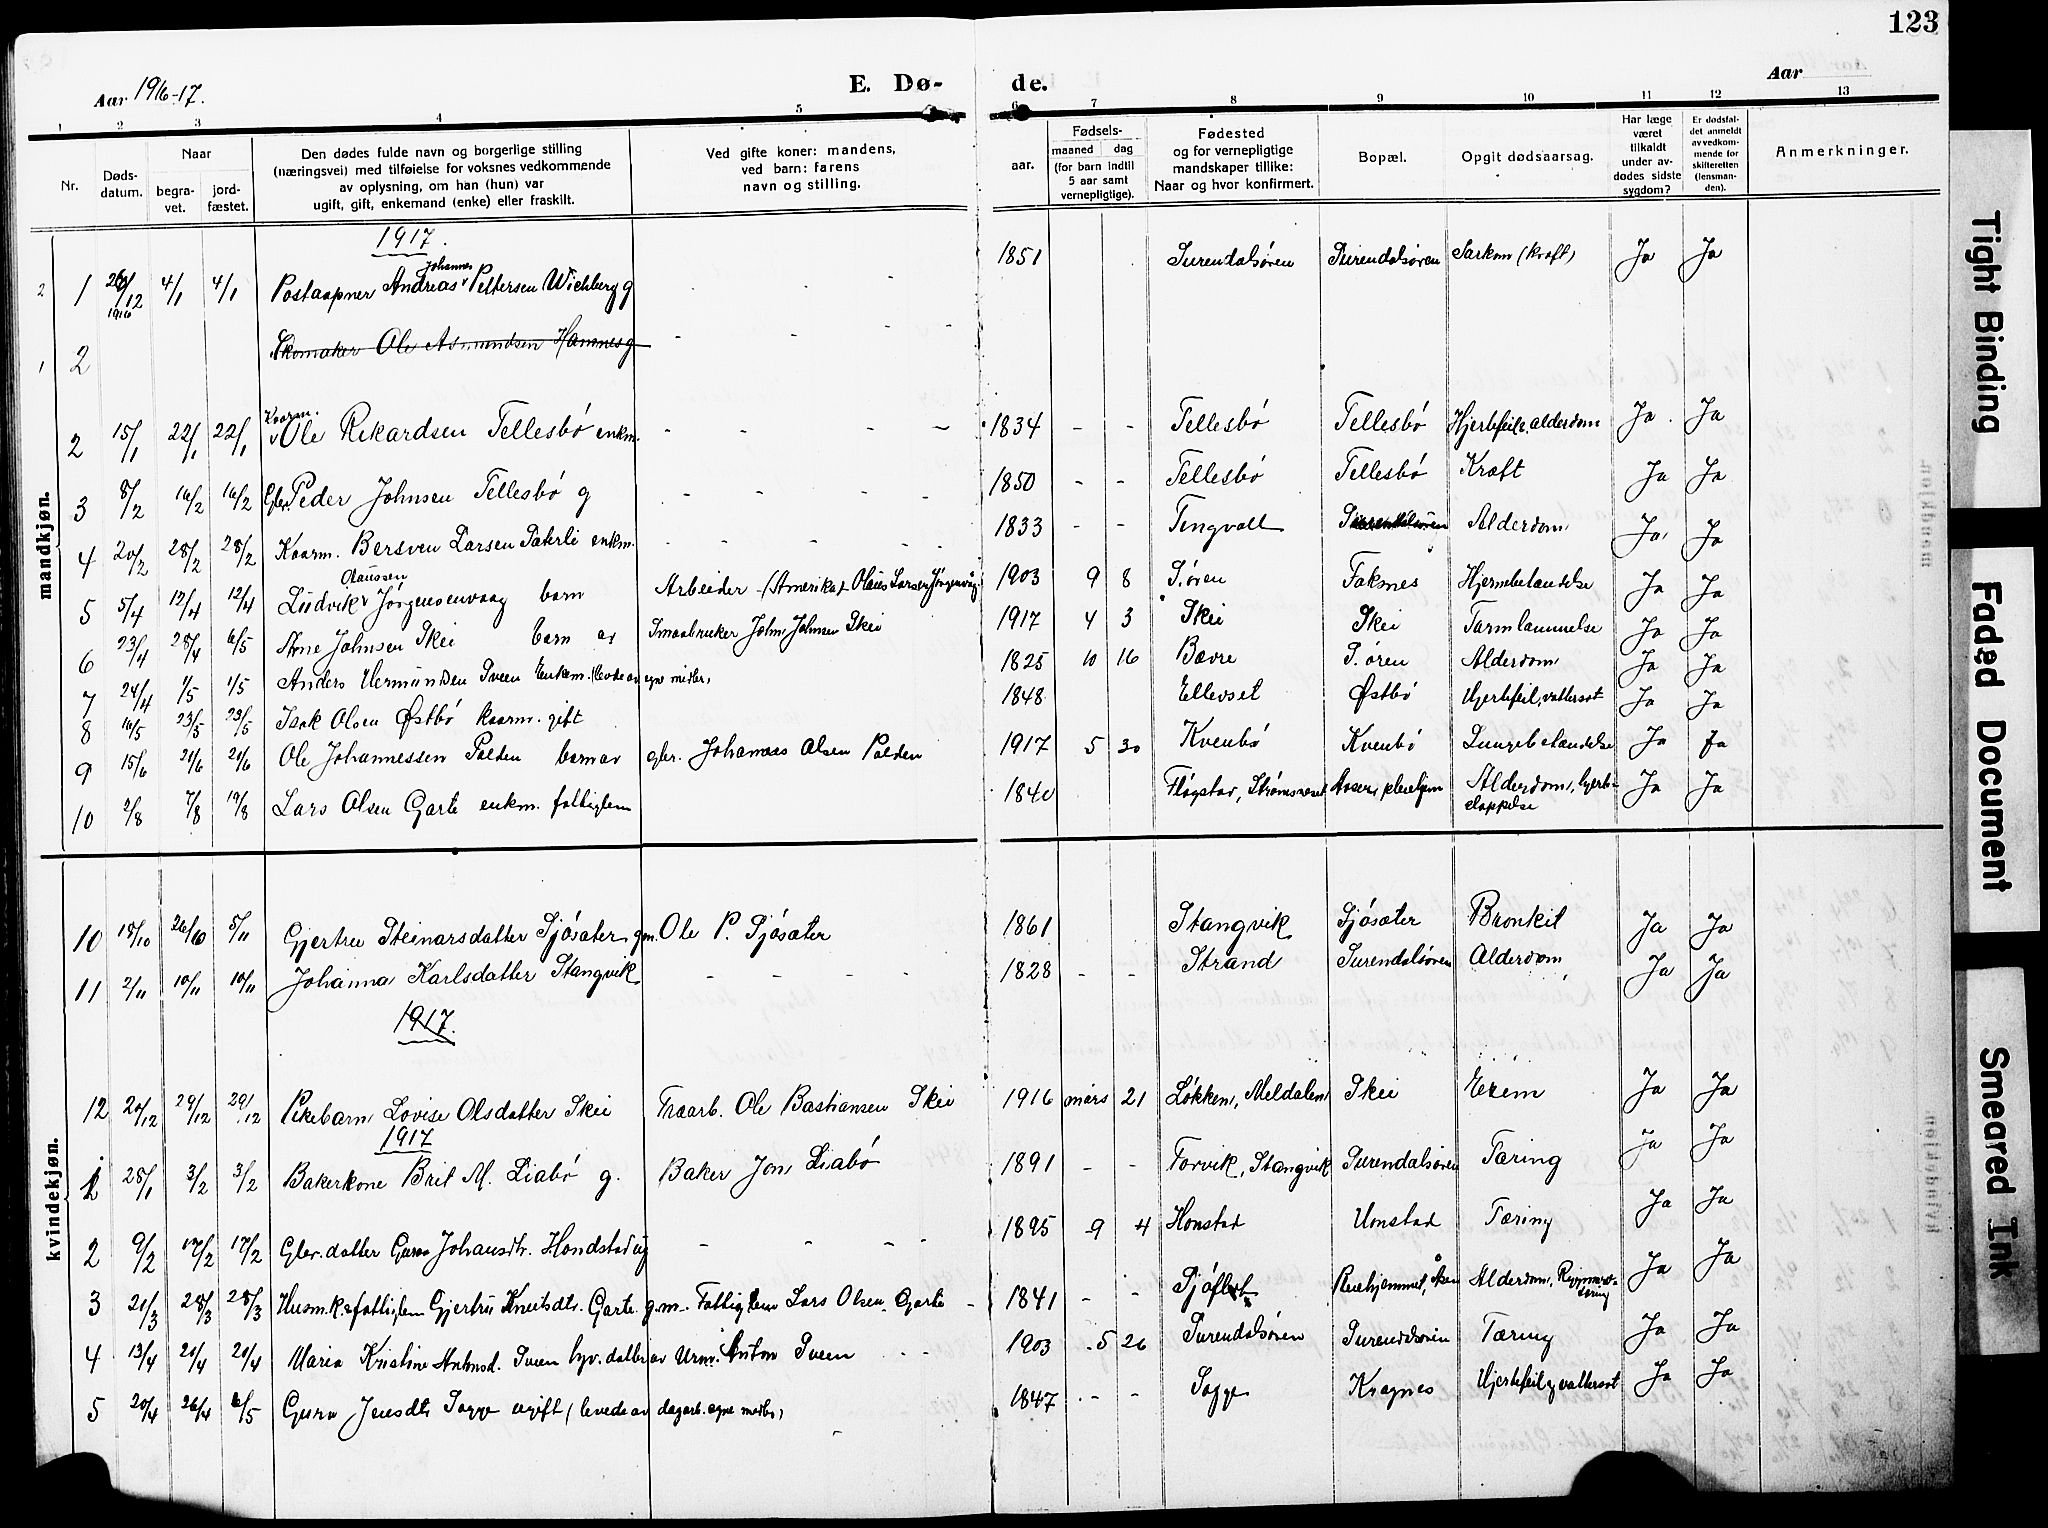 123
Aar 1916-17.
E. Dø-
de.
Aar
1 2 3 4 5 6 7 8 9 10 11 12 13
Nr.
Døds-
datum.
Naar
begra-
vet.
jord-
fæstet.
Den dødes fulde navn og borgerlige stilling
(næringsvei) med tilføielse for voksnes vedkommende
av oplysning, om han (hun) var
ugift, gift, enkemand (enke) eller fraskilt.
Ved gifte koner: mandens,
ved barn: farens
navn og stilling.
Fødsels-
aar.
maaned dag
(for barn indtil
5 aar samt
vernepligtige).
Fødested
og for vernepligtige
mandskaper tillike:
Naar og hvor konfirmert.
Bopæl.
Opgit dødsaarsag.
Har læge
været
tilkaldt
under av-
dødes sidste
sygdom?
Er dødsfal-
det anmeldt
av vedkom-
mende for
skifteretten
(lensman-
den).
Anmerkninger.
mandkjøn.
1917.
2 1 26/12 1916 4/1 4/1 Postaapner Andreas Johannes Pettersen Wichberg g - - - - 1851 Surendalsøren Surendalsøren Sarkom (kræft) Ja Ja
1 2 Skomaker Ole Asmundsen Hamnes g - - - -
2 15/1 22/1 22/1 Kaarm. Ole Rikardsen Tellesbø enkm. - - - - 1834 - - Tellesbø Tellesbø Hjertefeil, alderdom Ja. Ja
3 8/2 16/2 16/2 Gbr. Peder Johnsen Tellesbø g - - - - 1850 - - Tellesbø Tellesbø Kræft Ja Ja
4 20/2 28/2 28/2 Kaarm. Bersven Larsen Sæterli enkm. - - - - 1833 - - Tingvoll Surendalsøren Alderdom Ja, Ja
5 5/4 12/4 12/4 Ludvik Olaussen Jørgensenvaag barn Arbeider (Amerika) Olaus Larsen Jørgenvåg 1903 9 8 S.øren Faksnes Hjernebetændelse Ja Ja
6 23/4 28/4 6/5 Arne Johnsen Skei barn av Smaabruker John Johnsen Skei 1917 4 3 Skei Skei Tarmlammelse Ja Ja
7 24/4 1/5 1/5 Anders Vermundsen Sveen Enkem. (levde av egne midler) 1825 10 16 Bævre S. øren Alderdom Ja Ja
8 16/5 23/5 23/5 Isak Olsen Østbø kaarm. gift 1848 Ellevset Østbø Hjertefeil, vattersot Ja Ja
9 15/6 21/6 21/6 Ole Johannessen Polden barn av gbr. Johannes Olsen Polden 1917 5 30 Kvenbø Kvenbø Lungebetændelse Ja Ja
10 2/8 7/8 19/8 Lars Olsen Garte enkm. fattiglem 1840 Fløgstad, Strømsneset Aasen pleiehjem Alderdom, hjerte-
slappelse Ja Ja
kvindekjøn.
10 18/10 26/10 5/11 Gjertru Steinarsdatter Sjøsæter gm. Ole P. Sjøsæter 1861 Stangvik Sjøsæter Bronkit Ja Ja
11 2/11 10/11 10/11 Johanna Karlsdatter Stangvik - - - - 1828 - - Strand Surendalsøren Alderdom Ja Ja
1917.
12 20/12 29/12 29/12 Pikebarn Lovise Olsdatter Skei Træarb. Ole Bastiansen Skei 1916 mars 21 Løkken, Meldalen Skei Exem Ja Ja
1917
1 28/1 3/2 3/2 Bakerkone Brit M. Liabø g. Baker Jon Liabø 1891 - - Torvik, Stangvik Surendalsøren Tæring Ja Ja
2 9/2 17/2 17/2 Gbr. datter Guro Johansdtr. Hondstad ug - - - - 1895 9 4 Honstad Honstad Tæring Ja Ja
3 21/3 28/3 28/3 Husm.k. fattiglem Gjertru Knutsdtr. Garte g.m. Fattiglem Lars Olsen Garte - 1841 - - Sjøflot Pleiehjemmet, Åsen Alderdom, Ja Ja
4 13/4 20/4 20/4 Maria Kristine Antonsd. Sveen hjv. datter av Urm. Anton Sveen - - 1903 5 26 Surendalsøren Surendalsøren Tæring Ja Ja
5 20/4 26/4 6/5 Guro Jensdtr Sogge ugift (levede av dagarb. egne midler) 1847 - - Sogge Kragnes Hjertefeil og vattersot Ja Ja
Tight Binding
Faded Document
Smeared Ink